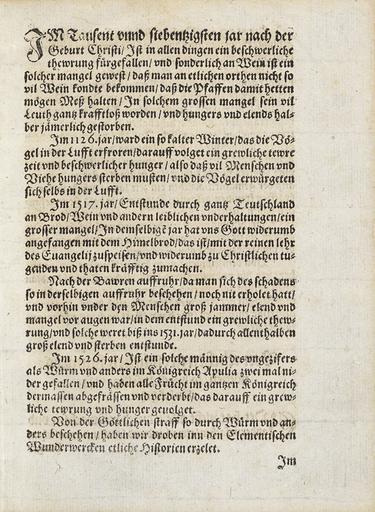 IM Tausent vnnd siebentzigsten jar nach der
Geburt Christi/ Ist in allen dingen ein beschwerliche
thewrung fürgefallen/ vnd sonderlich an Wein ist ein
solcher mangel gewest/ daß man an etlichen orthen nicht so
vil Wein kondte bekommen/ daß die Pfaffen damit hetten
mögen Meß halten/ In solchem grossen mangel sein vil
Leuth gantz krafftloß worden/ vnd hungers vnd elends hal-
ber jämerlich gestorben.
Im 1126. jar/ ward ein so kalter Winter/ das die Vö-
gel in der Lufft erfroren/ darauff volget ein grewliche tewr
zeit vnd beschwerlicher hunger/ also daß vil Menschen vnd
Viehe hungers sterben musten/ vnd die Vögel erwürgeten
sich selbs in der Lufft.
Im 1517. jar/ Entstunde durch gantz Teutschland
an Brod/ Wein vnd andern leiblichen vnderhaltungen/ ein
grosser mangel/ In demselbigē jar hat vns Gott widerumb
angefangen mit dem Himelbrod/ das ist/ mit der reinen lehr
des Euangelij zuspeisen/ vnd widerumb zu Christlichen tu-
genden vnd thaten kräfftig zumachen.
Nach der Bawren auffruhr/ da man sich des schadens
so in derselbigen auffruhr beschehen/ noch nit erholet hatt/
vnd vorhin vnder den Menschen groß jammer/ elend vnd
mangel vor augen war/ in dem entstund ein grewliche thew-
rung/ vnd solche weret biß ins 1531. jar/ dadurch allenthalben
groß elend vnd sterben entstunde.
Im 1526. jar/ Ist ein solche männig des vngezifers
als Würm vnd anders im Königreich Apulia zwei mal ni-
der gefallen/ vnd haben alle Frücht im gantzen Königreich
dermassen abgefrässen vnd verderbt/ das darauff ein grew-
liche tewrung vnd hunger geuolget.
Von der Göttlichen straff so durch Würm vnd an-
ders beschehen/ haben wir droben inn den Elementischen
Wunderwercken etliche Historien erzelet.
Im